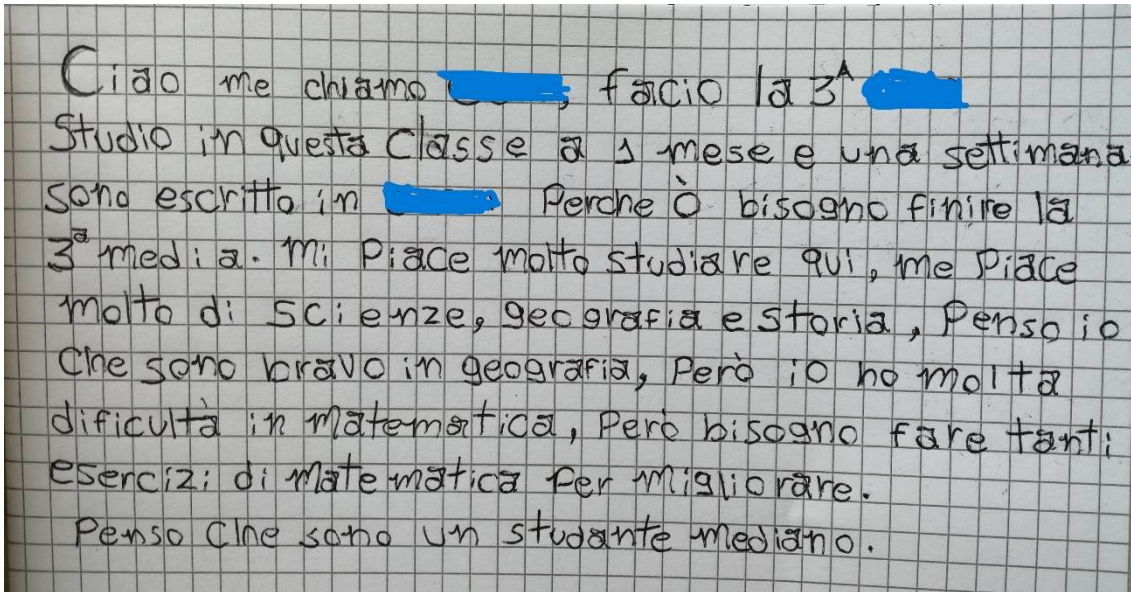 Ciao me chiamo , facio la 3ᴬ
Studio in questa Classe a 1 mese e una settimana
sono escritto in Perche Ò bisogno finire la
3ª media. Mi Piace molto studiare qui, me Piace
molto di Scienze, geografia e storia, Penso io
che sono bravo in geografia, Però io ho molta
dificultà in matematica, Però bisogno fare tanti
esercizi di matematica Per migliorare.
Penso che sono un studante mediano.